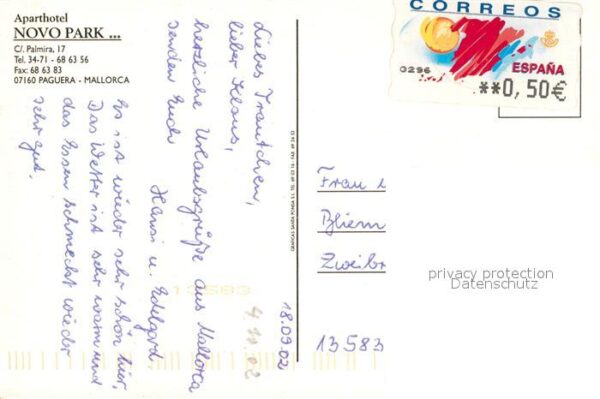 Aparthotel
NOVO PARK ...
C/. Palmira, 17
Tel. 34-71 - 68 63 56
Fax: 68 63 83
07160 PAGUERA - MALLORCA
18.09.02
Liebes Trautchen,
lieber Klaus,
herzliche Urlaubsgrüße aus Mallorca
senden Euch
Hansi u. Edelgard
Es ist wieder sehr schön hier.
Das Wetter ist sehr warm und
das Essen schmeckt wieder
sehr gut.
CORREOS
ESPAÑA
0296
**0,50€
Frau
Bliem
Zweibr
13583
privacy protection
Datenschutz
13583